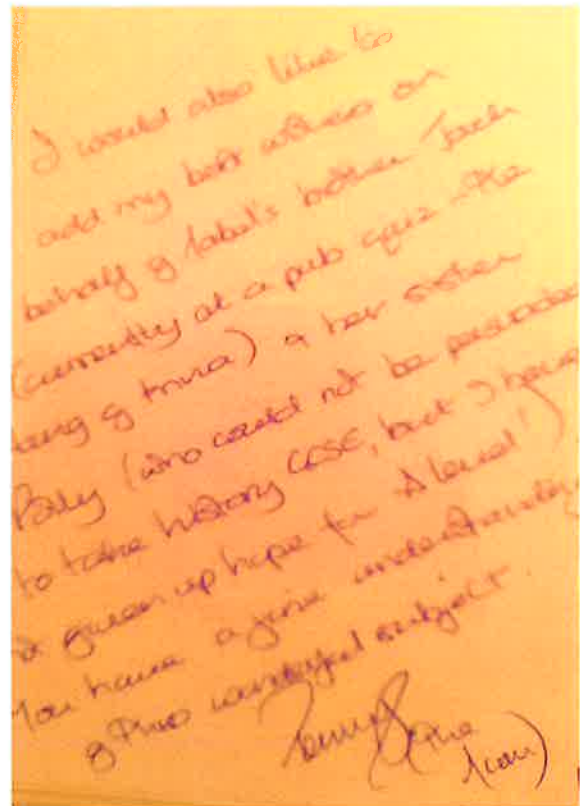 I would also like to
add my best wishes on
behalf of Isabel's brother Jack
(currently at a pub quiz - the
king of trivia) & her sister
Polly (who could not be persuaded
to take history GCSE, but I have
given up hope for A level!)
You have a fine understanding
of this wonderful subject.